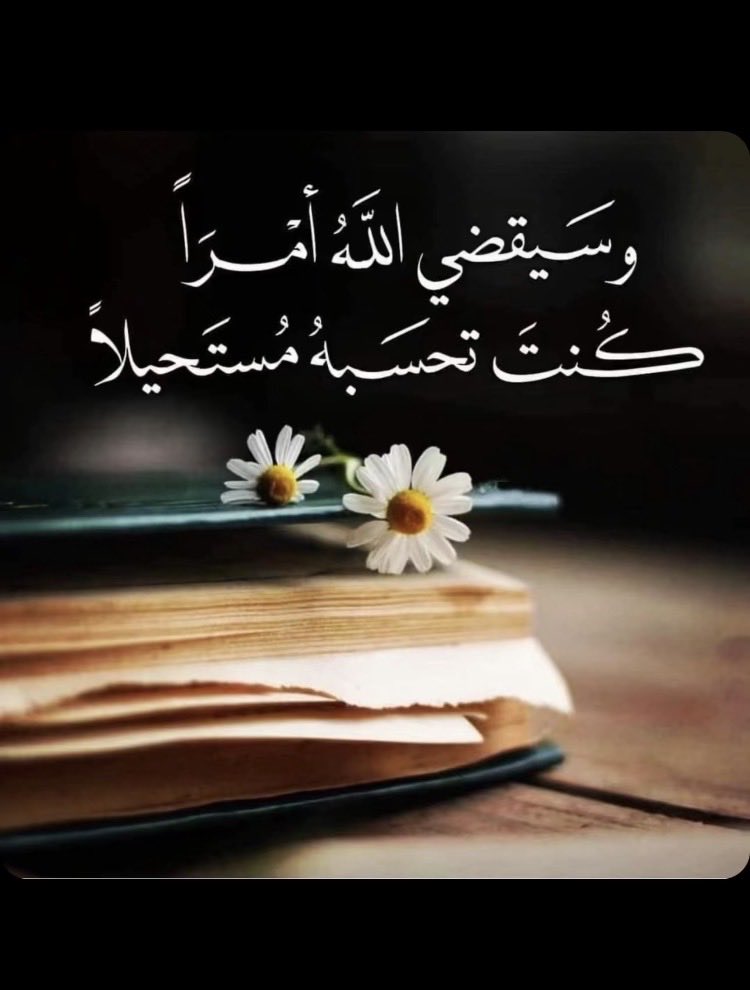 وسَيقضي اللَّهُ أمْرَاً
كُنتَ تحسَبهُ مُستَحيلاً